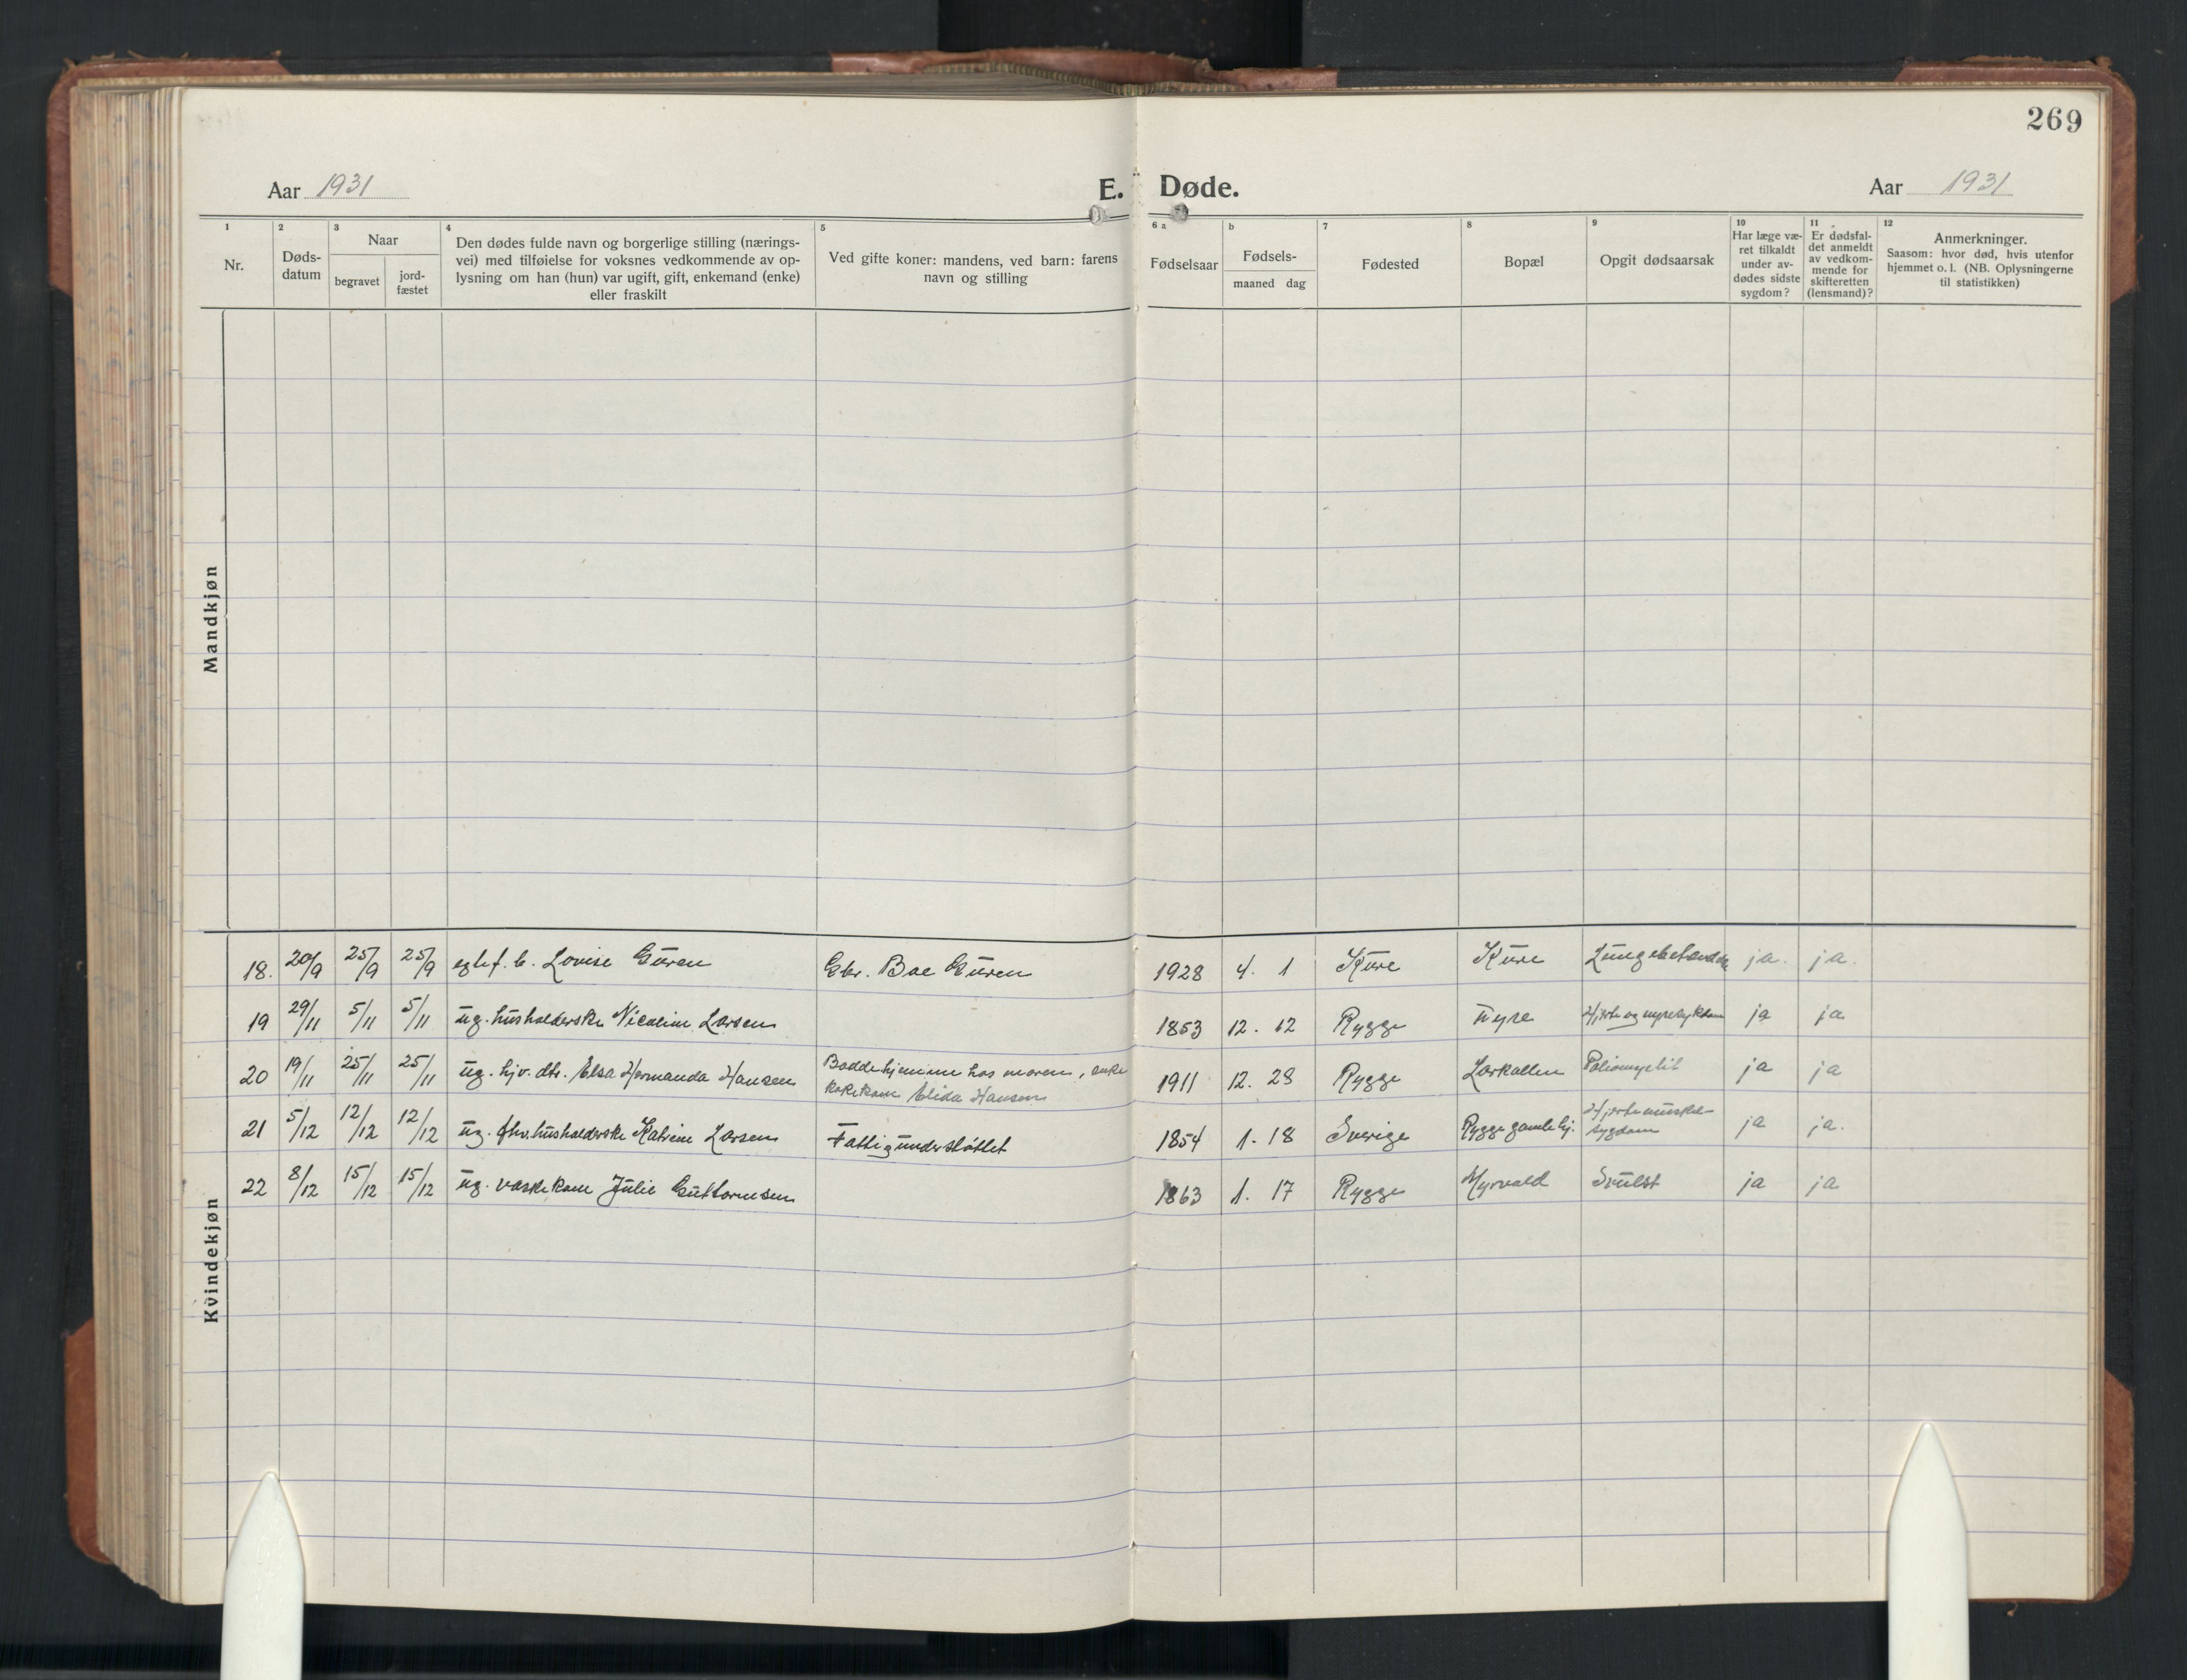 269
Aar 1931
E. Døde.
Aar 1931
1
Nr.
2
Døds-
datum
3
Naar
begravet
jord-
fæstet
4
Den dødes fulde navn og borgerlige stilling (nærings-
vei) med tilføielse for voksnes vedkommende av op-
lysning om han (hun) var ugift, gift, enkemand (enke)
eller fraskilt
5
Ved gifte koner: mandens, ved barn: farens
navn og stilling
6 a
Fødselsaar
b
Fødsels-
maaned dag
7
Fødested
8
Bopæl
9
Opgit dødsaarsak
10
Har læge væ-
ret tilkaldt
under av-
dødes sidste
sygdom?
11
Er dødsfal-
det anmeldt
av vedkom-
mende for
skifteretten
(lensmand)?
12
Anmerkninger.
Saasom: hvor død, hvis utenfor
hjemmet o. l. (NB. Oplysningerne
til statistikken)
Mandkjøn
Kvindekjøn
18. 20/9 25/9 25/9 egtef. b. Lovise Guren Gbr. Boe Guren 1928 4. 1 Kure Kure ja. ja.
19 29/11 5/11 5/11 ug. husholderske Nicoline Larsen 1853 12. 12 Rygge Hjerte og nyresykdom ja ja
20 19/11 25/11 25/11 ug. hjv. dtr. Elsa Hermanda Hansen Bodde hjemme hos moren, enke 1911 12. 28 Rygge Larkollen Poliomyelit ja ja
kokekone Elida Hansen
21 5/12 12/12 12/12 ug. fhv. husholderske Katrine Larsen Fattigunderstøttet 1854 1. 18 Sverige Rygge gamlehj. Hjertemuskel- ja ja.
sygdom
22 8/12 15/12 15/12 ug. vaskekone Julie Guttormsen 1863 1. 17 Rygge Myrvold Svulst ja ja